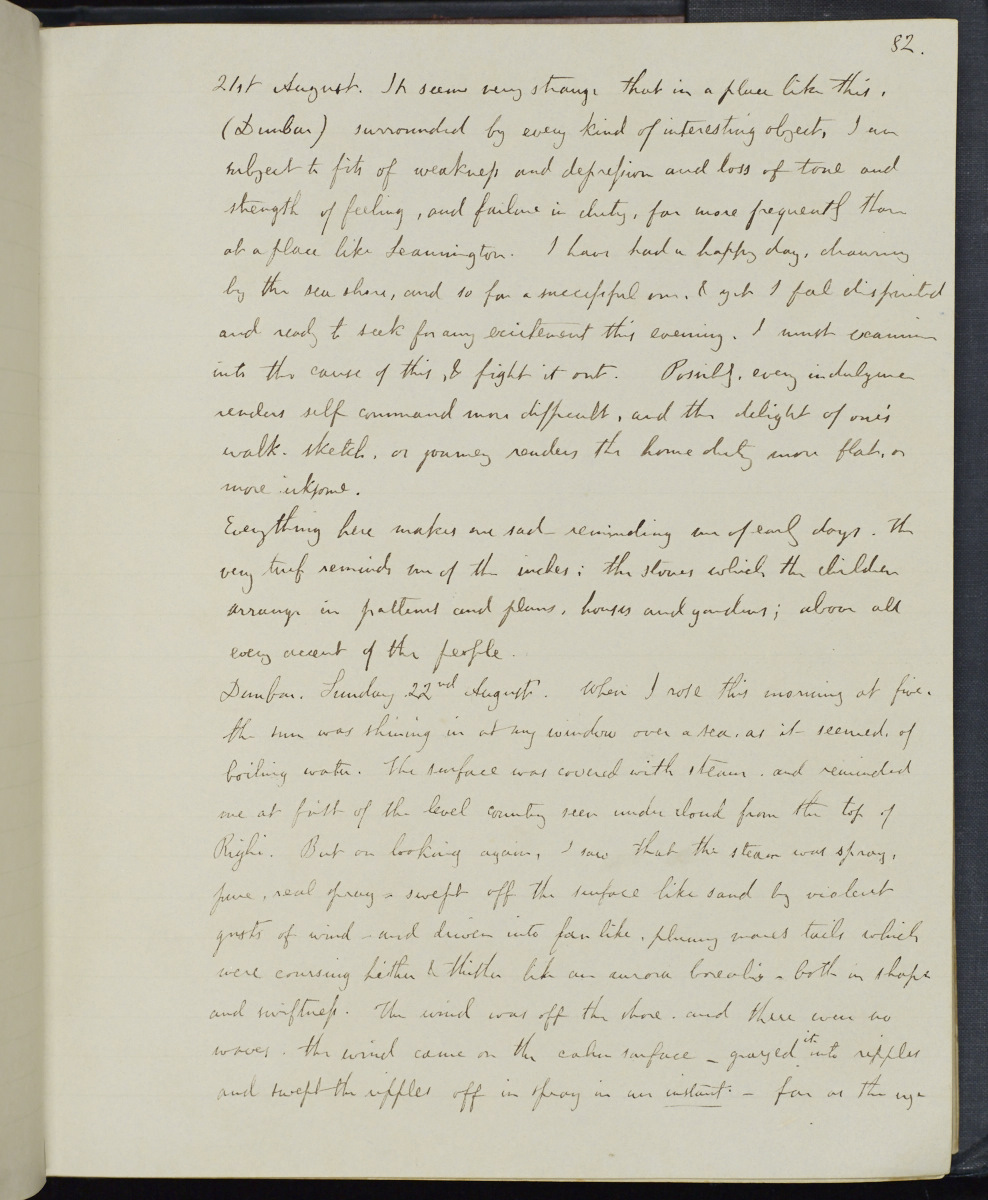 82.
21st August. It seems very strange that in a place like this.
(Dunbar) surrounded by every kind of interesting object, I am
subject to fits of weakness and depression and loss of tone and
strength of feeling, and failure in duty, far more frequently than
at a place like Leamington. I have had a happy day, drawing
by the sea shore, and so far a successful one. & yet I feel dispirited
and ready to seek for any excitement this evening. I must examine
into the cause of this, & fight it out. Possibly, every indulgence
renders self command more difficult, and the delight of one's
walk. sketch, or journey renders the home duty more flat, or
more irksome.
Everything here makes me sad - reminding me of early days. The
very turf reminds me of the inches; the stones which the children
arrange in patterns and plans, houses and gardens; above all
every accent of the people.
Dunbar. Sunday 22nd August. When I rose this morning at five.
the sun was shining in at my window over a sea, as it seemed, of
boiling water. The surface was covered with steam. and reminded
me at first of the level country seen under cloud from the top of
Righi. But on looking again, I saw that the steam was spray,
pure, real spray - swept off the surface like sand by violent
gusts of wind - and driven into fan like, plumy mares tails which
were coursing hither & thither like an aurora borealis - both in shape
and swiftness. The wind was off the shore. and there were no
waves. the wind came on the calm surface - grazed it into ripples
and swept the ripples off in spray in an instant - far as the eye